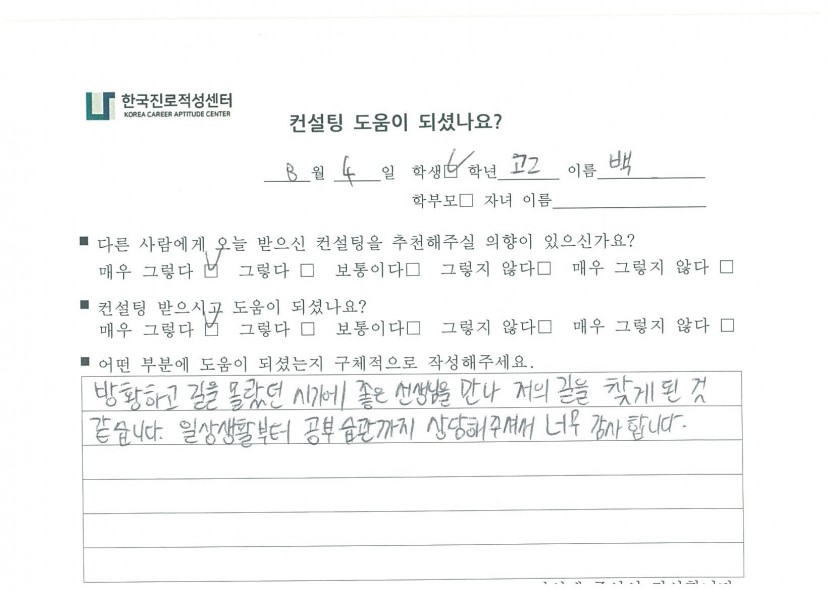 한국진로적성센터
KOREA CAREER APTITUDE CENTER
컨설팅 도움이 되셨나요?
8월 4일 학생☑ 학년 고2 이름 백
학부모□ 자녀 이름
■ 다른 사람에게 오늘 받으신 컨설팅을 추천해주실 의향이 있으신가요?
매우 그렇다 ☑ 그렇다 □ 보통이다□ 그렇지 않다□ 매우 그렇지 않다 □
■ 컨설팅 받으시고 도움이 되셨나요?
매우 그렇다 ☑ 그렇다 □ 보통이다□ 그렇지 않다□ 매우 그렇지 않다 □
■ 어떤 부분에 도움이 되셨는지 구체적으로 작성해주세요.
방황하고 길을 몰랐던 시기에 좋은 선생님을 만나 저의 길을 찾게 된 것
같습니다. 일상생활부터 공부습관까지 상담해주셔서 너무 감사합니다.